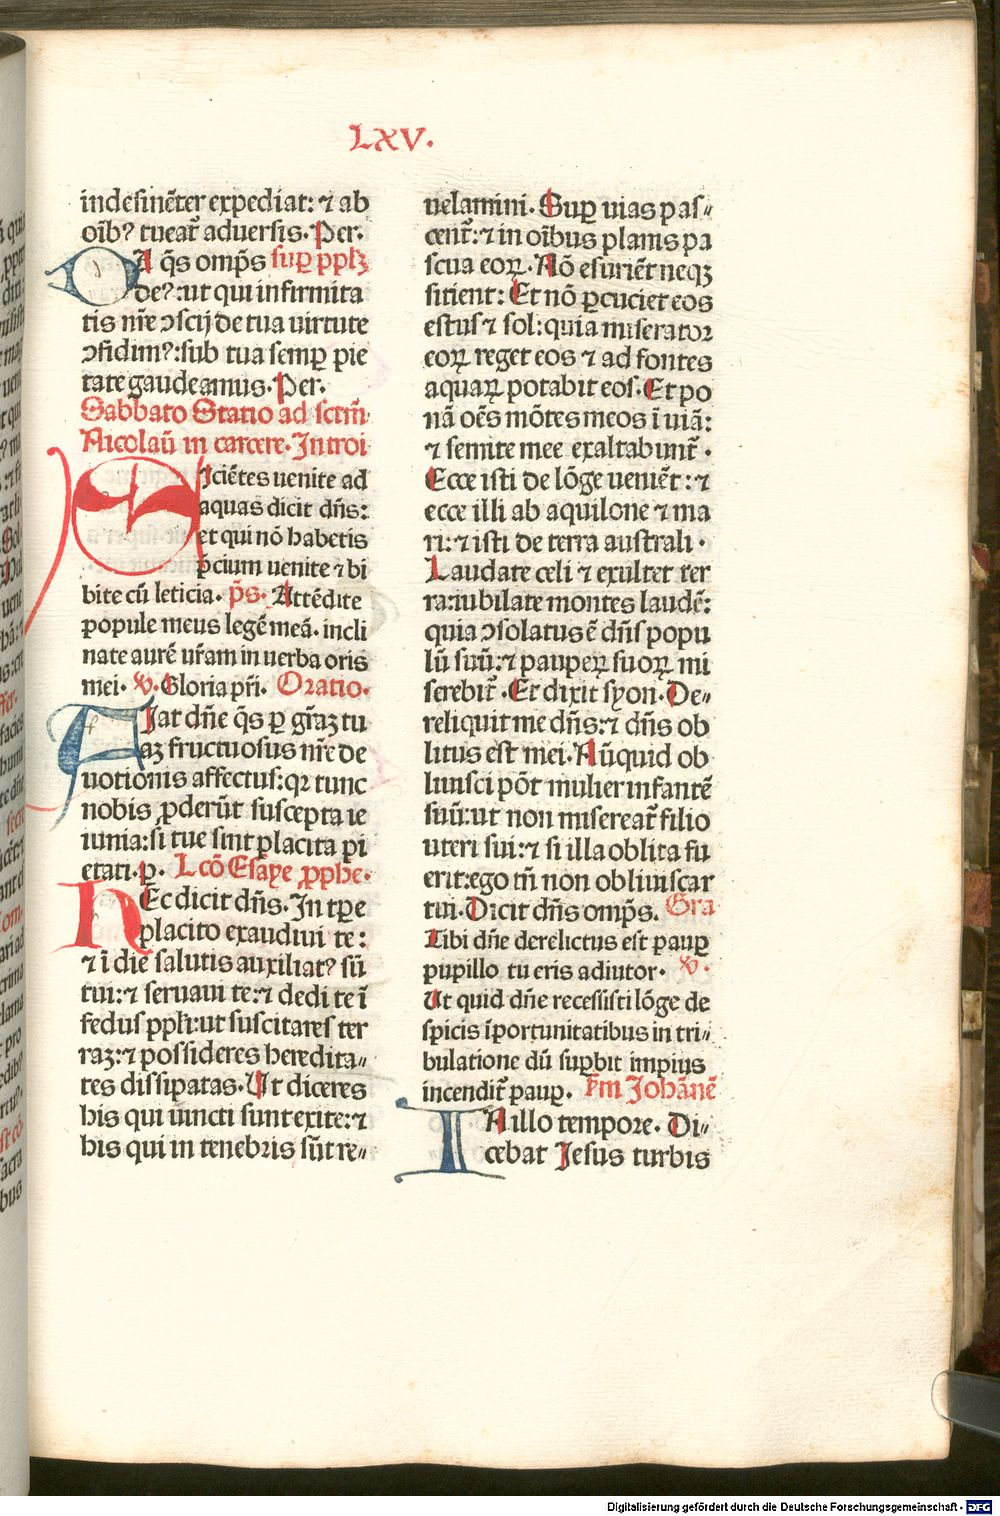 LXV.
indesinēter expediat: ⁊ ab
oīb? tueat᷑ adversis. Per.
DA q̄s omp̄s suꝑ ppl'ꝫ
de?:ut qui infirmita
tis nr̄e ↄscij de tua uirtute
ↄfidim?:sub tua semꝑ pie
tate gaudeamus. Per.
Sabbato Statio ad sctm̄
Nicolaū in carcere. Introi
Siciētes uenite ad
aquas dicit dn̄s:
et qui nō habetis
p̄cium uenite ⁊ bi
bite cū leticia. p̄s. Attēdite
popule meus legē meā. incli
nate aurē ur̄am in uerba oris
mei. ℣. Gloria pr̄i. Oratio.
Fiat dn̄e q̄s ꝑ gr̄aꝫ tu
aꝫ fructuosus nr̄e de
uotionis affectus:qꝛ tunc
nobis ꝓderūt suscepta ie
iunia:si tue sint placita pi
etati.ꝑ. Lcō Esaye ꝓphe.
HEc dicit dn̄s. In tꝑe
placito exaudiui te:
⁊ ī die salutis auxiliat? sū
tui:⁊ seruaui te:⁊ dedi te ī
fedus ppl'i:ut suscitares ter
raꝫ:⁊ possideres heredita⸗
tes dissipatas. Ut diceres
his qui uincti sunt exite:⁊
his qui in tenebris sūt re⸗
uelamini. Suꝑ uias pas⸗
cent᷑:⁊ in oībus planis pa
scua eoꝝ. Nō esuriēt neqꝫ
sitient: Et nō ꝑcuciet eos
estus ⁊ sol:quia miserator
eoꝝ reget eos ⁊ ad fontes
aquaꝝ potabit eos. Et po
nā oēs mōtes meos ī uiā:
⁊ semite mee exaltabunt᷑.
Ecce isti de lōge ueniēt:⁊
ecce illi ab aquilone ⁊ ma
ri:⁊ isti de terra australi.
Laudate celi ⁊ exultet ter
ra:iubilate montes laudē:
quia ↄsolatus ē dn̄s popu
lū suū:⁊ paupeꝝ suoꝝ mi
serebit᷑. Et dixit syon. De⸗
reliquit me dn̄s:⁊ dn̄s ob
litus est mei. Nūquid ob
liuisci pōt mulier infantē
suū:ut non misereat᷑ filio
uteri sui:⁊ si illa oblita fu
erit:ego tn̄ non obliuiscar
tui. Dicit dn̄s omp̄s. Gra
Tibi dn̄e derelictus est pauꝑ
pupillo tu eris adiutor. ℣.
Ut quid dn̄e recessisti lōge de
spicis īportunitatibus in tri⸗
bulatione dū suꝑbit impius
incendit᷑ pauꝑ. Sm̄ Johānē
IN illo tempore. Di⸗
cebat Jesus turbis
Digitalisierung gefördert durch die Deutsche Forschungsgemeinschaft - DFG